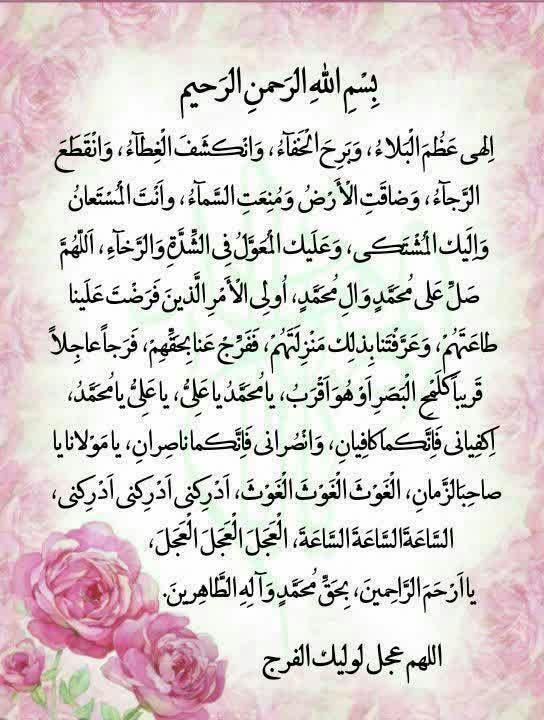 بِسْمِ اللهِ الرَحمنِ الرَحیم
اِلهی عَظُمَ الْبَلاءُ، وَبَرِحَ الْخَفآءُ، وَانْکَشَفَ الْغِطآءُ، وَانْقَطَعَ
الرَّجآءُ، وَضاقَتِ الْأَرْضُ وَمُنِعَتِ السَّمآءُ، وأنْتَ الْمُسْتَعانُ
وَاِلَیْكَ الْمُشْتَکی، وَعَلَیْكَ الْمُعَوَّلُ فِی الشِّدَّةِ وَالرَّخآءِ، اَللّهُمَّ
صَلِّ عَلی مُحَمَّدٍ وَالِ مُحَمَّدٍ، اُولِی الْأَمْرِ الَّذینَ فَرَضْتَ عَلَینا
طاعَتَهُمْ، وَعَرَّفْتَنا بِذلِكَ مَنْزِلَتَهُمْ، فَفَرِّجْ عَنا بِحَقِّهِمْ، فَرَجاً عاجِلاً
قَریباً کَلَمْحِ الْبَصَرِ اَوْ هُوَ اَقْرَبُ، یا مُحَمَّدُ یا عَلِیُّ، یا عَلِیُّ یا مُحَمَّدُ،
اِکْفِیانی فَاِنَّکُما کافِیانِ، وَانْصُرانی فَاِنَّکُما ناصِرانِ، یا مَوْلانا یا
صاحِبَ الزَّمانِ، الْغَوْثَ الْغَوْثَ الْغَوْثَ، اَدْرِکْنی اَدْرِکْنی اَدْرِکْنی،
السَّاعَةَ السَّاعَةَ السَّاعَةَ، الْعَجَلَ الْعَجَلَ الْعَجَلَ،
یا اَرْحَمَ الرَّاحِمینَ، بِحَقِّ مُحَمَّدٍ وَآلِهِ الطَّاهِرینَ.
اللهم عجل لولیك الفرج